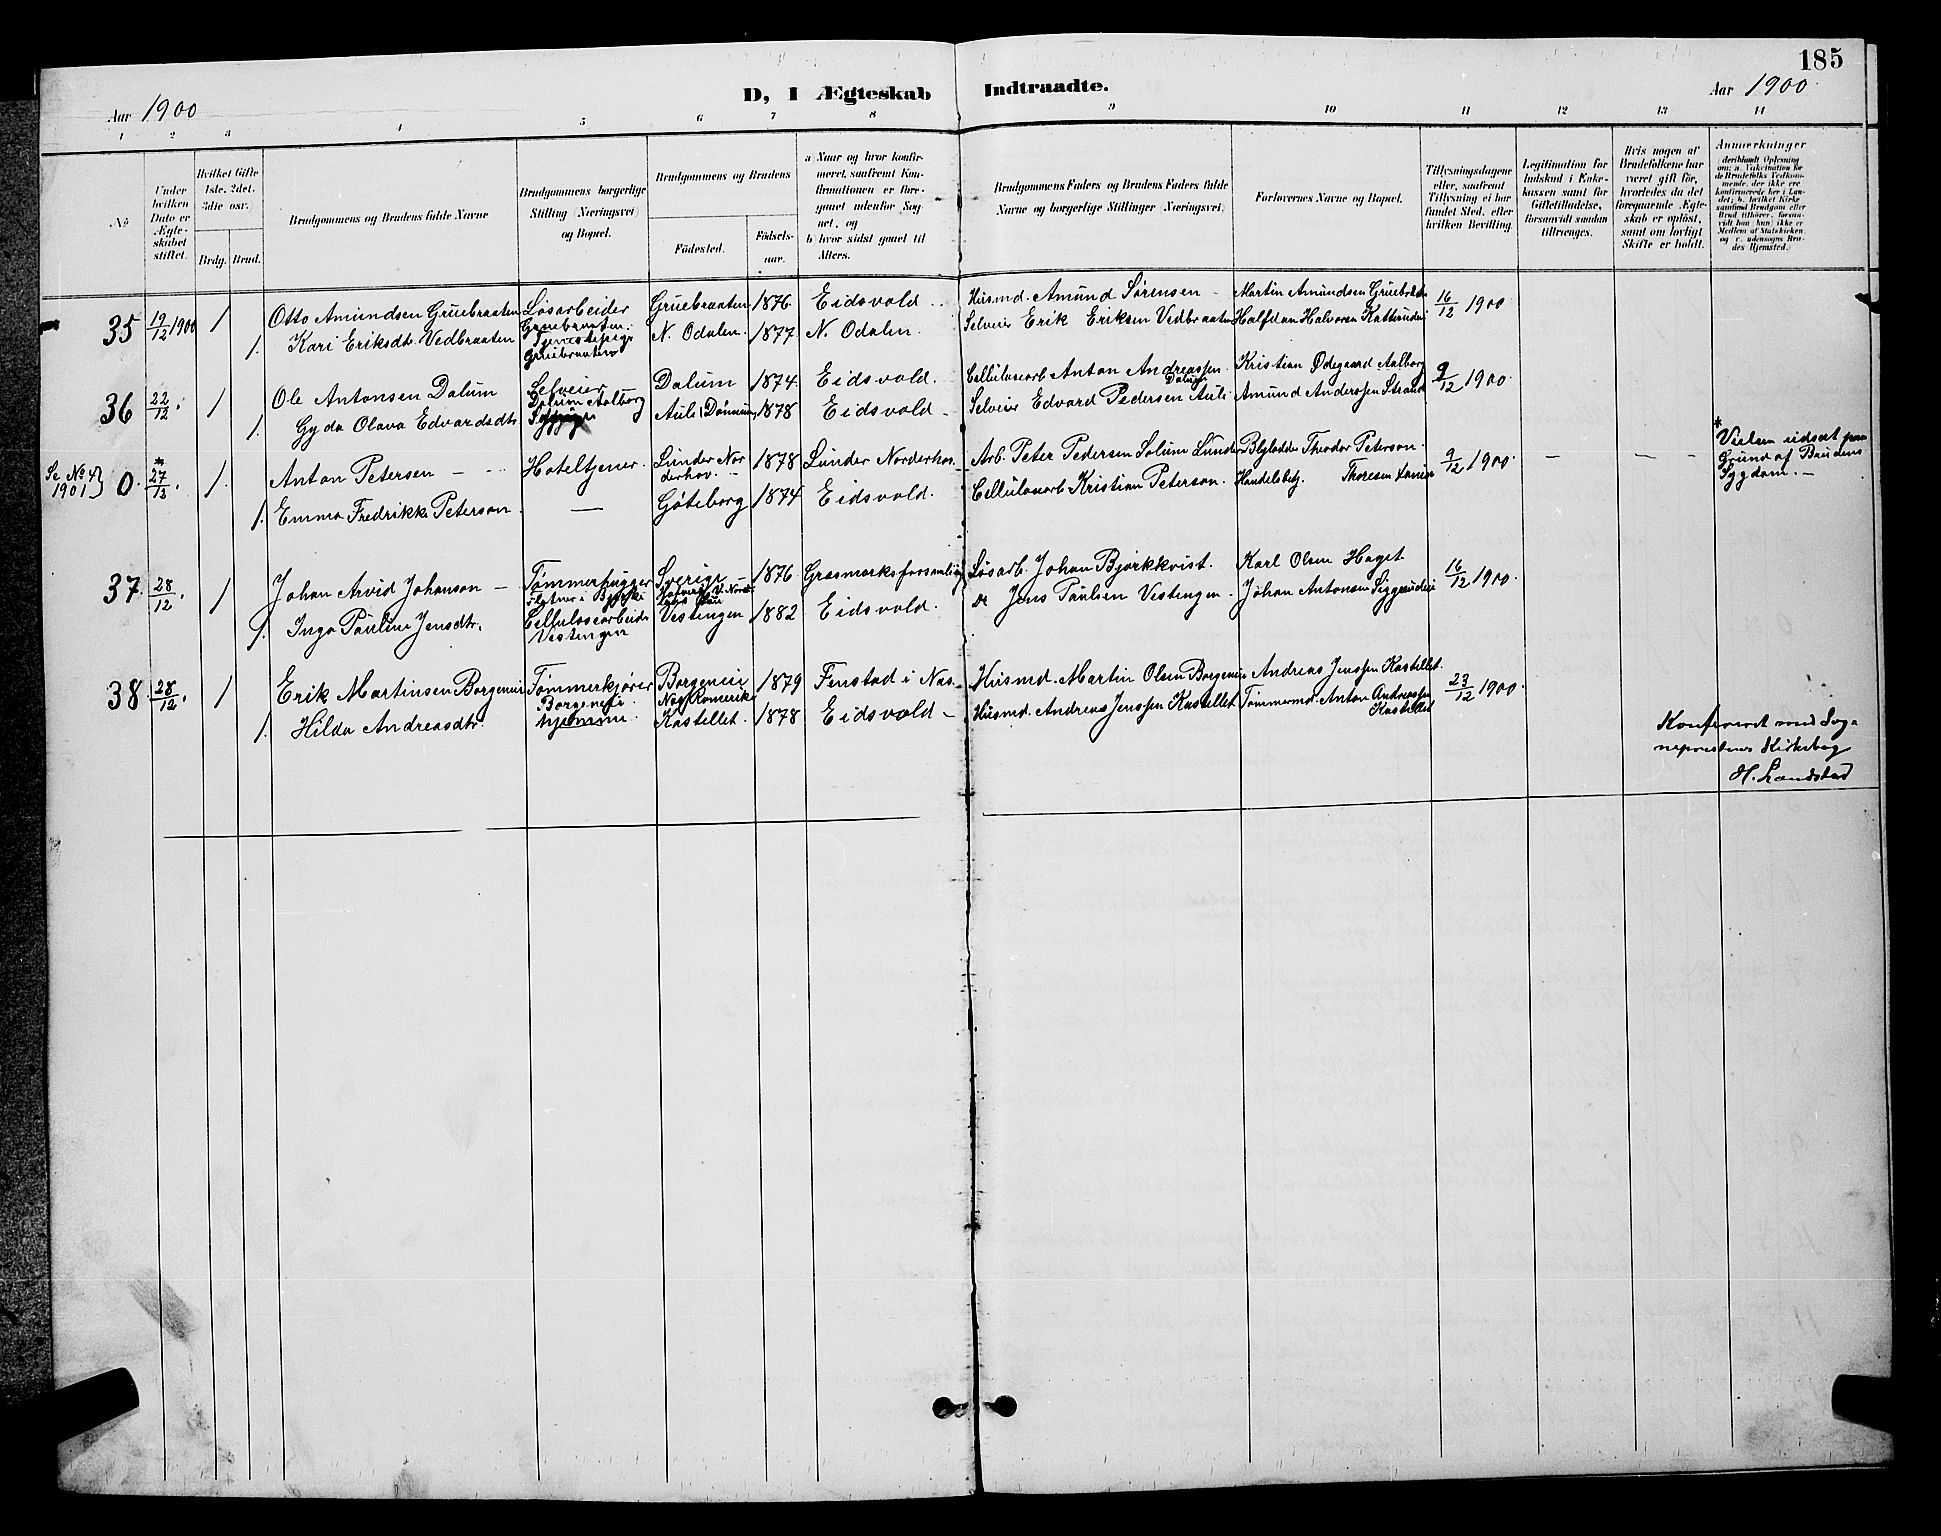 185
Aar 1900
D, I Ægteskab Indtraadte.
Aar 1900.
1 2 3 4 5 6 7 8 9 10 11 12 13 14
No
Under hvilken Dato er Ægteskabet stiftet.
Hvilket Gifte 1ste, 2det, 3die osv.
Brdg. Brud.
Brudgommens og Brudens fulde Navne
Brudgommens borgerlige Stilling (Næringsvei) og Bopæl.
Brudgommens og Brudens
Födested.
Födsels-aar.
a) Naar og hvor konfirmeret, saafremt Konfirmationen er foregaaet udenfor Sognet, og
b) hvor sidst gaaet til Alters.
Brudgommens Faders og Brudens Faders fulde Navne og borgerlige Stillinger (Næringsvei)
Forlovernes Navne og Bopæl.
Tillysningsdagene eller, saafremt Tillysning ei har fundet Sted, efter hvilken Bevilling.
Legitimation for Indskud i Enkekassen samt for Giftetilladelse, forsaavidt saadan tiltrænges.
Hvis nogen af Brudefolkene har været gift för, hvorledes da det foregaaende Ægteskab er oplöst, samt om lovligt Skifte er holdt.
Anmerkninger
deriblandt Oplysning om: a. Vakcination for de Brudefolks Vedkommende, der ikke ere konfirmerede her i Landet; b. hvilket Kirkesamfund Brudgom eller Brud tilhörer, forsaavidt han (hun) ikke er Medlem af Statskirken, og c. udensogns Brudes Hjemsted.
35 19/12 1900 1 Otto Amundsen Gruebraaten Løsarbeider Gruebraaten 1876 Eidsvold Husmd. Amund Sørensen Martin Amundsen Gruebraaten 16/12 1900
Gruebraaten.
1. Kari Eriksdtr. Vedbraaten Tjenestepige N. Odalen 1877 N. Odalen Selveier Erik Eriksen Vedbraaten Halfdan Halvorsen Katterudei
Gruebraaten
36 22/12. 1 Ole Antonsen Dalum Selveier Dalum 1874 Eidsvold. Cellulosearb Anton Andreassen Dalum Kristian Ødegaard Aalborg 9/12 1900
Dalum Aalborg
1. Gyda Olava Edvardsdtr Aule (Dønnum) 1878 Eidsvold Selveier Edvard Pedersen Aule Amund Anderssen Strand
Se No 4 1901) 0. * 27/12. 1. Anton Petersen Hoteltjener. Lunder Norderhov. 1878 Lunder Norderhov. Arb. Peter Pedersen Solum Lunder Theodor Peterson. 9/12 1900 — — —
* Vielsen udsat paa Grund af Brudens Sygdom. —
1. Emma Fredrikke Peterson — Göteborg 1874 Eidsvold. Cellulosearb Kristian Peterson. Handelsbetj. Thoresen
37. 28/12. 1 Johan Arvid Johanson Tømmerhugger Sverige 1876 Grasmarksforsamling Løsarb. Johan Bjørkkvist. Karl Olsen Haget 16/12 1900.
1. Inga Pauline Jensdtr. Cellulosearbeider Vestengen 1882 Eidsvold. Do Jens Paulsen Vestengen. Johan Antonsen Siggerudei
Vestengen
38. 28/12. 1 Erik Martinsen Borgeneie Tømmerkjører Borgeneie 1879 Fenstad i Nas. Husmd. Martin Olsen Borgeneie Andreas Jenssen Kastellet. 23/12 1900.
Borgeneie. Nes Romerike
1. Hilda Andreasdtr. hjemme. Kastellet. 1878 Eidsvold Husmd. Andreas Jenssen Kastellet Tømmermd. Anton Andreassen Kastellet
Konfereret med Sogneprestens Kirkebog
H. Landstad